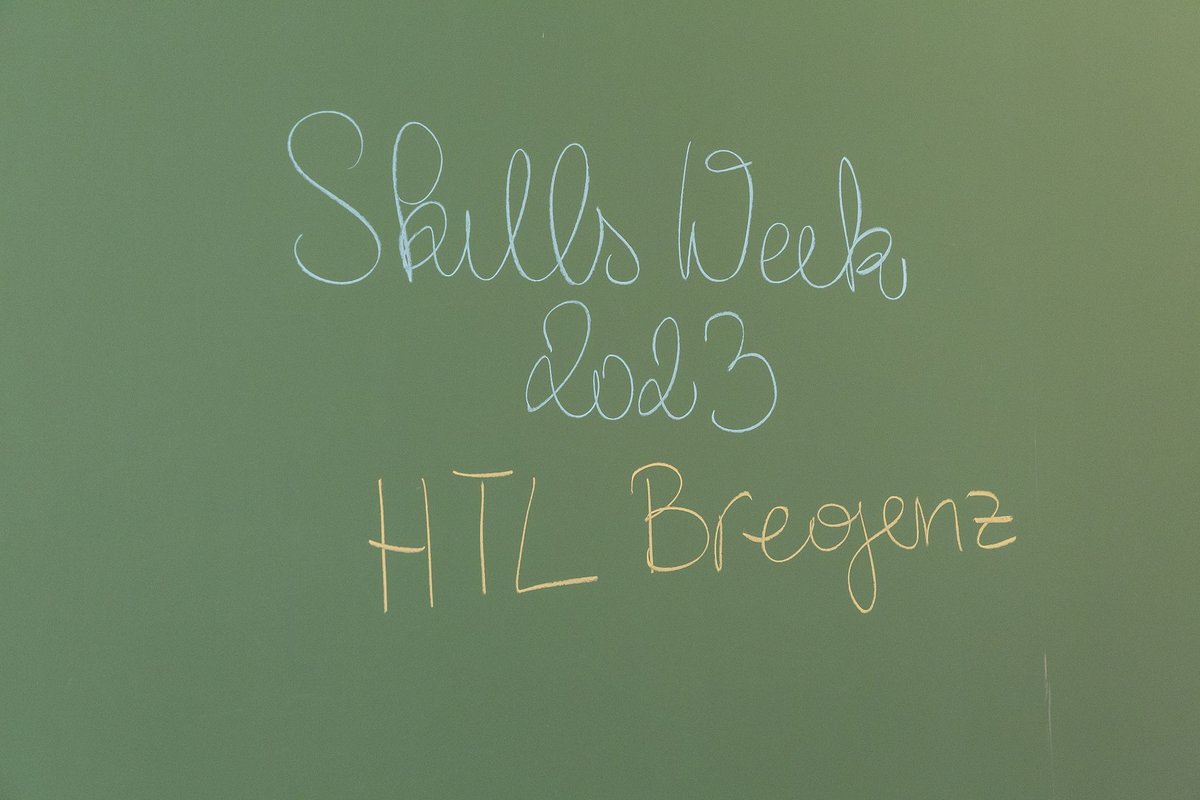 Skills Week
2023
HTL Bregenz